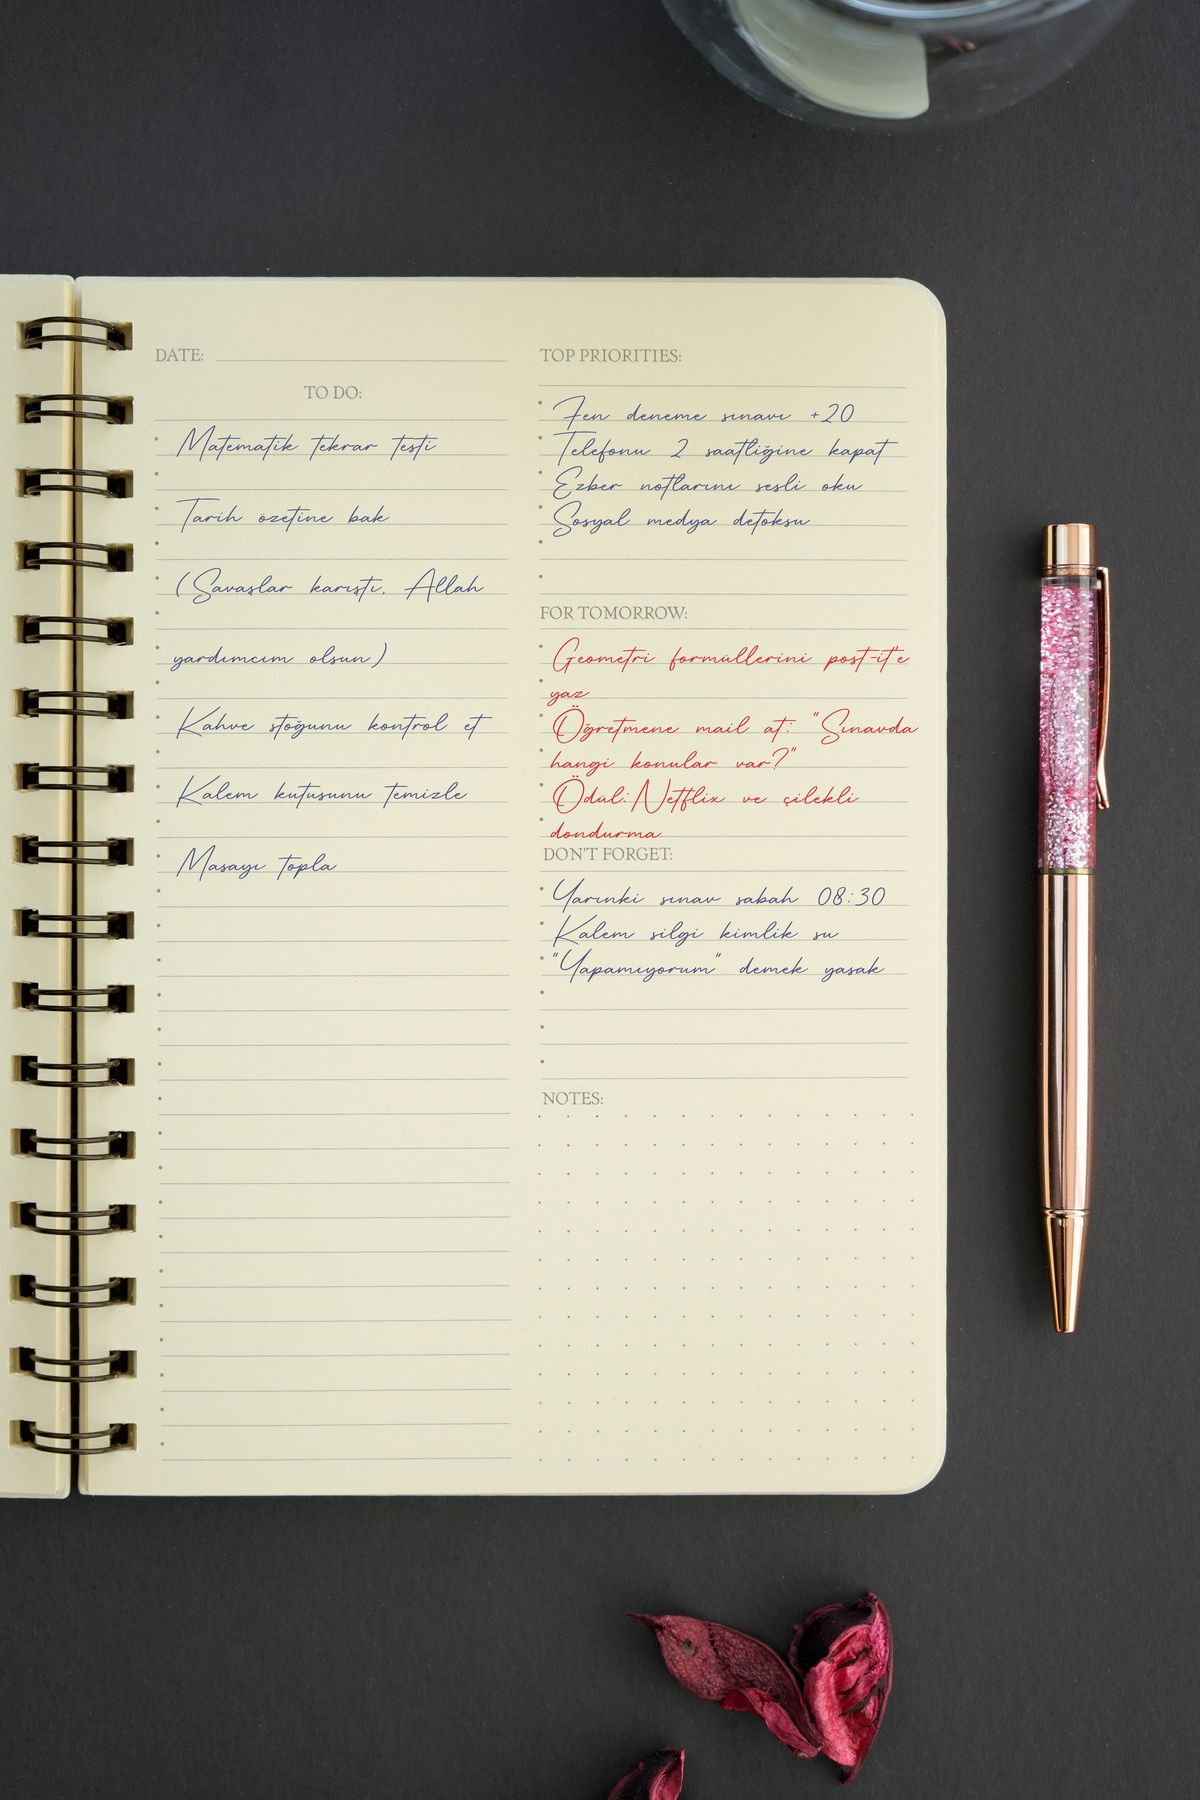 DATE:
TO DO:
Matematik tekrar testi
Tarih özetine bak
(Savaslar karıstı. Allah
yardımcım olsun)
Kahve stoğunu kontrol et
Kalem kutusunu temizle
Masayı topla
TOP PRIORITIES:
Fen deneme sınavı +20
Telefonu 2 saatliğine kapat
Ezber notlarını sesli oku
Sosyal medya detoksu
FOR TOMORROW:
Geometri formüllerini post-it'e
yaz
Öğretmene mail at: "Sınavda
hangi konular var?"
Ödül: Netflix ve çilekli
dondurma
DON'T FORGET:
Yarınki sınav sabah 08:30
Kalem silgi kimlik su
"Yapamıyorum" demek yasak
NOTES: